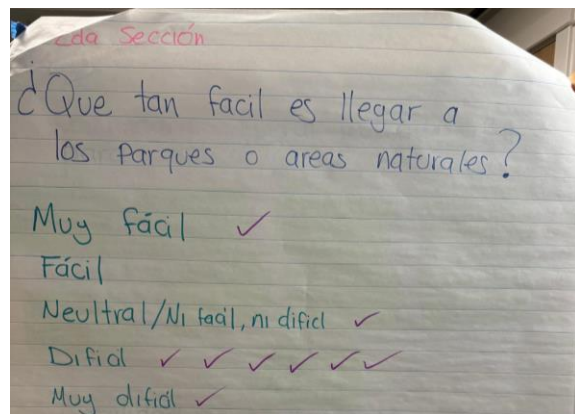 2da Sección
¿Que tan facil es llegar a
los parques o areas naturales?
Muy fácil ✓
Fácil
Neultral/Ni facil, ni dificl ✓
Dificl ✓ ✓ ✓ ✓ ✓ ✓
Muy dificil ✓